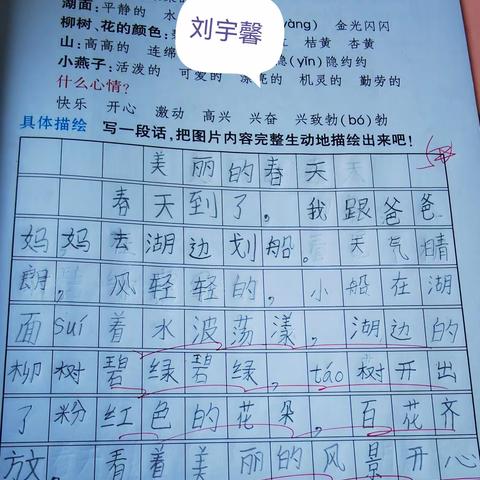 湖面:平静的 水
刘宇馨
柳树、花的颜色: (yàng) 金光闪闪
山:高高的 连绵 红 桔黄 杏黄
小燕子:活泼的 可爱的 漂亮的 机灵的 勤劳的
隐(yǐn)隐约约
什么心情?
快乐 开心 激动 高兴 兴奋 兴致勃(bó)勃
具体描绘 写一段话,把图片内容完整生动地描绘出来吧!
美丽的春天
春天到了,我跟爸爸
妈妈去湖边划船。天气晴
朗,风轻轻的,小船在湖
面suí着水波荡漾,湖边的
柳树碧绿碧绿,táo树开出
了粉红色的花朵,百花齐
方文,看着美丽的风景开心